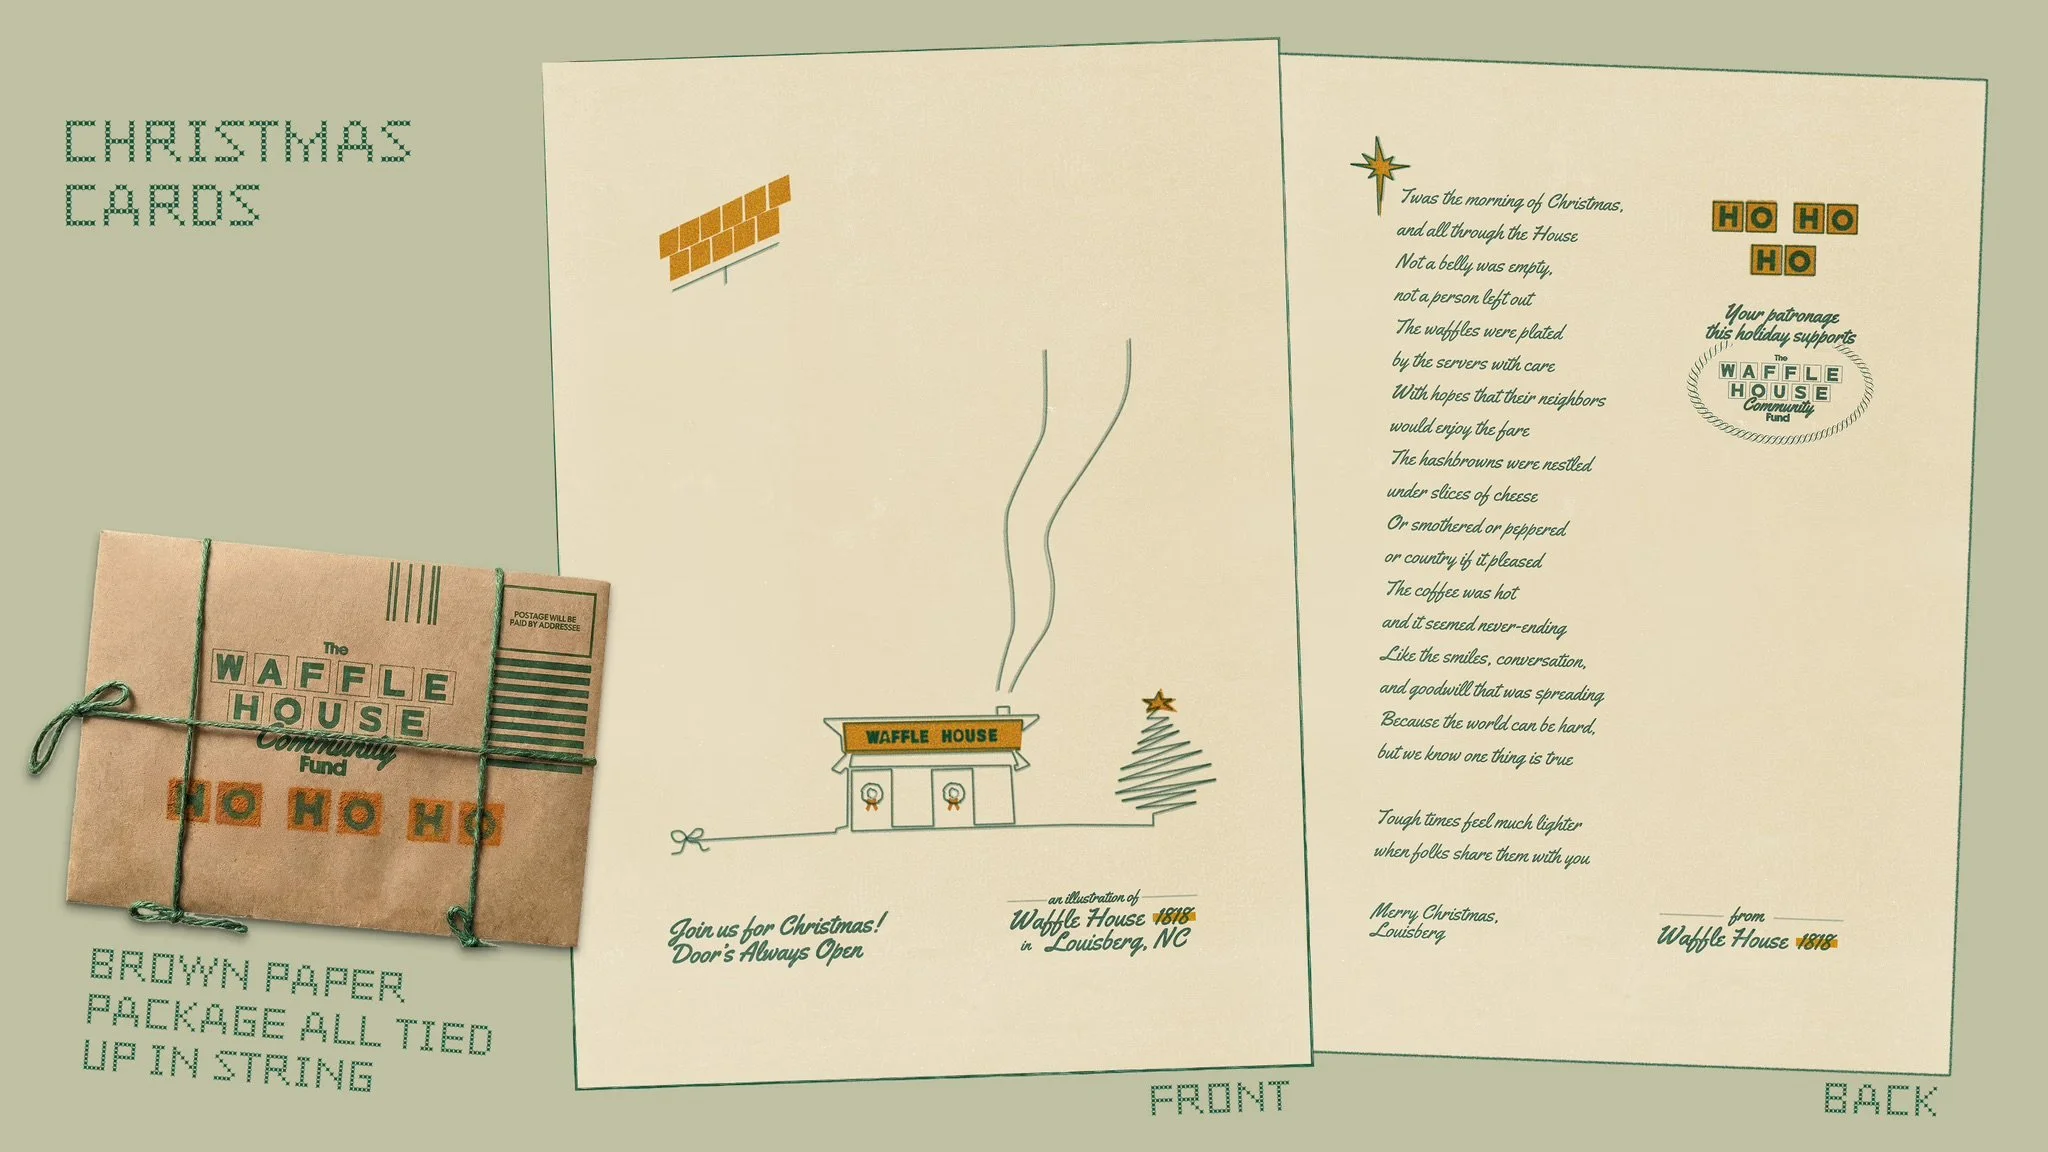 CHRISTMAS
CARDS
The
WAFFLE
HOUSE
Community
Fund
HO HO HO
POSTAGE WILL BE
PAID BY ADDRESSEE
BROWN PAPER
PACKAGE ALL TIED
UP IN STRING
WAFFLE HOUSE
Join us for Christmas!
Door's Always Open
an illustration of
Waffle House 1818
in Louisberg, NC
FRONT
'Twas the morning of Christmas,
and all through the House
Not a belly was empty,
not a person left out
The waffles were plated
by the servers with care
With hopes that their neighbors
would enjoy the fare
The hashbrowns were nestled
under slices of cheese
Or smothered or peppered
or country if it pleased
The coffee was hot
and it seemed never-ending
Like the smiles, conversation,
and goodwill that was spreading
Because the world can be hard,
but we know one thing is true
Tough times feel much lighter
when folks share them with you
Merry Christmas,
Louisberg
HO HO
HO
Your patronage
this holiday supports
The
WAFFLE
HOUSE
Community
Fund
from
Waffle House 1818
BACK